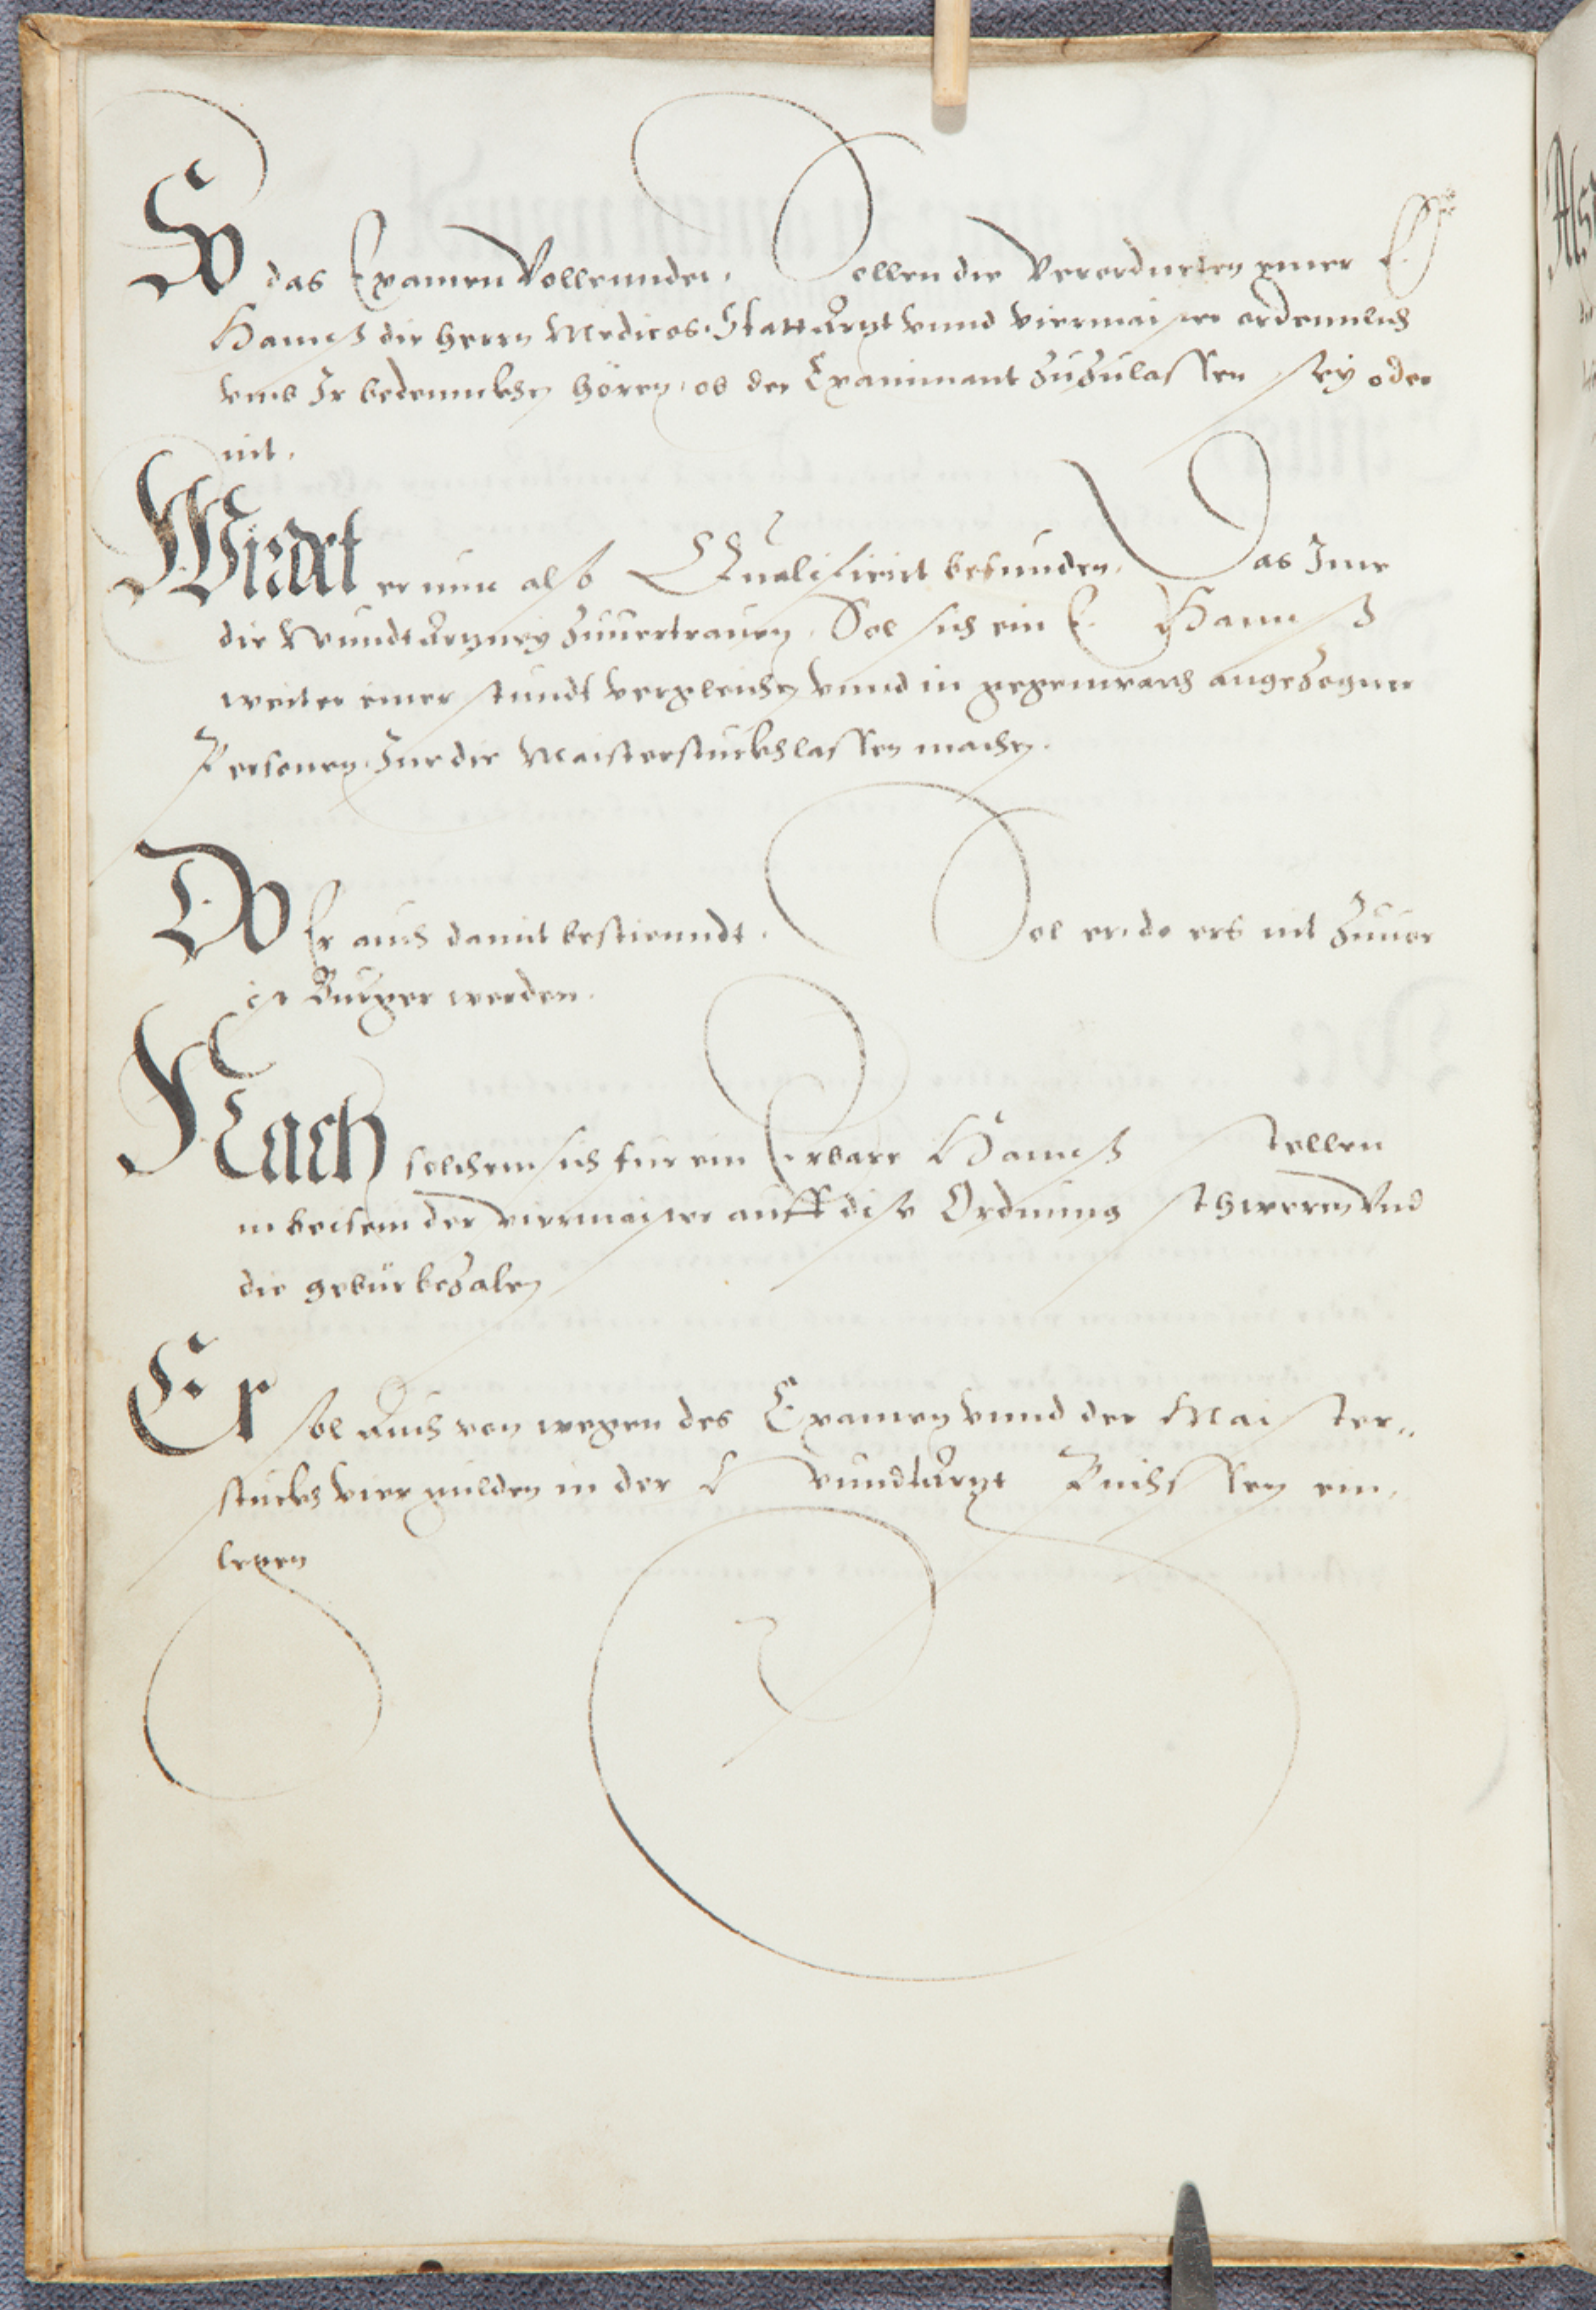 So das Examen Vollenndet. Sollen die Verordneten einer E.
Hannß die herrn Medicos. Statt Ärtzt vnnd viermaister ordennlich
vmb Ir bedennckhen hören, ob der Examinant zuzulassen sey oder
nit.
Wirdet er nun also Qualificirt befunden. Das Ime
die Wundtärtzney zuuertrauen. Sol sich ein E. Hannß
weiter einer stundt vergleichen vnnd in gegenwart angezogner
Personen, Ine die Maisterstuckh lassen machen.
Do Er auch damit bestienndt. Sol er, do ers nit zuuor
ist Burger werden.
Nach solchem sich fur ein Erbare Hannß stellen
in beisein der viermaister auff dise Ordnung schweren Vnd
die gebür bezalen
Er sol Auch von wegen des Examen vnnd der Maister„
stuckh vier gulden in der Wundtärtzt Buchssen ein,
legen